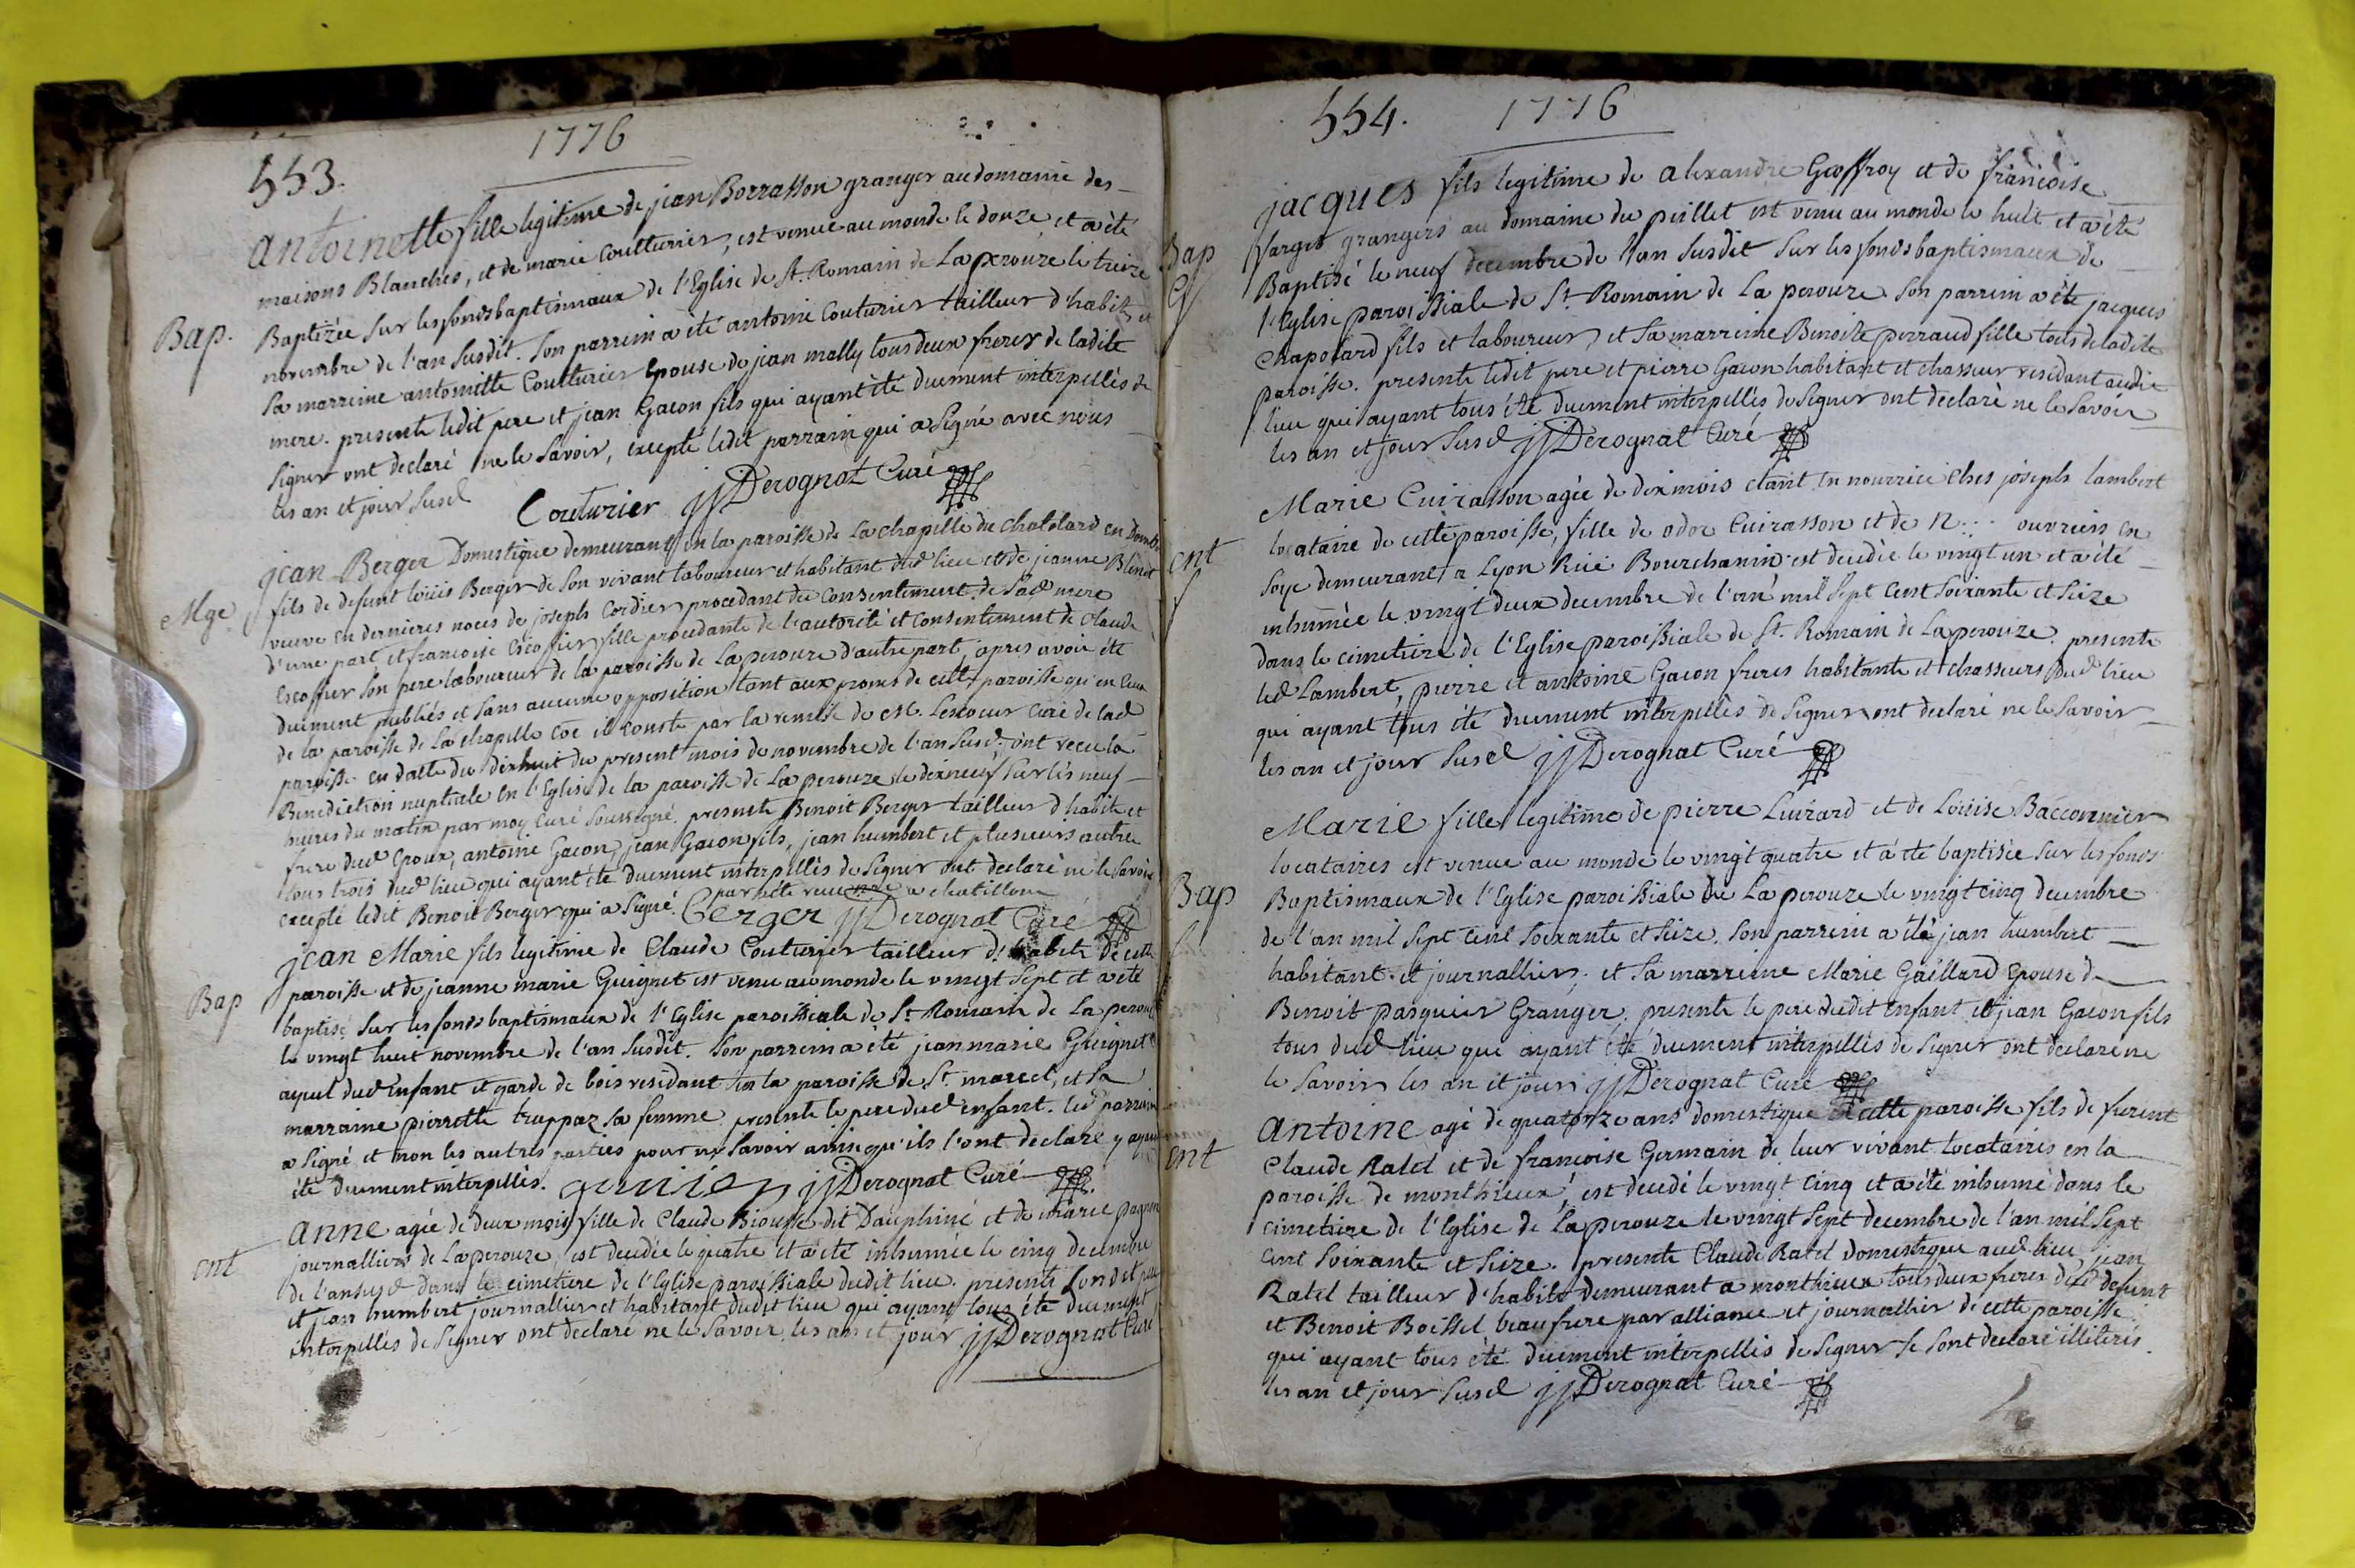 553.
1776
Antoinette fille legitime de jean Borrasson granger au domaine des
maisons Blanches, et de marie Coutturier, est venue au monde le douze, et a été
Bap.
Baptizée sur les fonds baptismaux de l'Eglise de St. Romain de Laperouze le treize
novembre de l'an susdit. Son parrein a été antoine Couturier tailleur d'habits et
sa marreine antoinette Coutturier Epouse de jean mally tous deux freres de ladite
mere. presents ledit pere et jean Gacon fils qui ayant été duement interpellés de
signer ont declaré ne le savoir, excepté ledit parrain qui a signé avec nous
les an et jour susd
Couturier jjDerognat Curé
jean Berger Domestique demeurant en la paroisse de La chapelle du chatelard en Dombe
Mge
fils de defunt loüis Berger de son vivant laboureur et habitant dud lieu et de jeanne Blenet
veuve en dernieres noces de joseph Cordier procedant du consentement de sad mere
d'une part, et francoise Escoffier fille procedante de l'autorité et consentement de Claude
Escoffier son pere laboureur de la paroisse de Laperouze d'autre part, apres avoir été
duement publiés et sans aucune opposition tant aux prones de cette paroisse qu'en ceux
de la paroisse de La chapelle coe il conste par la remise de Mr. Lescoeur curé de lad
paroisse en datte du dixhuit du present mois de novembre de l'an susd. ont recu la
Benediction nuptiale en l'Eglise de la paroisse de La perouze le dixneuf sur les neuf
heures du matin par moy Curé soussigné. presents Benoit Berger tailleur d'habits et
frere dud Epoux, antoine Gacon, jean Gacon fils, jean humbert et plusieurs autre
tous trois dud lieu qui ayant été duement interpellés de signer ont declaré ne le savoir
excepté ledit Benoit Berger qui a signé. a chatillon
Berger jjDerognat Curé
jean Marie fils legitime de Claude Couturier tailleur d'habits de cette
Bap
paroisse et de jeanne marie Guignet est venu au monde le vingt sept et a été
baptisé sur les fonds baptismaux de l'Eglise paroissiale de St Romain de La perouze
le vingt huit novembre de l'an susdit. Son parrein a été jean marie Guignet
ayeul dud Enfant et garde de bois residant en la paroisse de St. marcel, et sa
marraine pierrette trappaz sa femme. presents le pere dud enfant. led parrain
a signé et non les autres parties pour ne savoir ainsi qu'ils l'ont declaré y ayant
été duement interpellés. jjDerognat Curé
anne agée de deux mois fille de Claude Biousse dit Dauphiné et de marie
ent
journalliers de Laperouze, est decedée le quatre et a été inhumée le cinq decembre
de l'an susd dans le cimetiere de l'Eglise paroissiale dudit lieu. presents
et jean humbert journallier et habitant dudit lieu qui ayant tous été duement
interpellés de signer ont declaré ne le savoir. les an et jour jjDerognat Curé
554.
1776
jacques fils legitime de alexandre Geoffroy et de francoise
farges grangers au domaine du peillet est venu au monde le huit et a été
Bap
Baptisé le neuf decembre de l'an susdit sur les fonds baptismaux de
l'Eglise paroissiale de St Romain de La perouze. Son parrein a été jacques
Chapolard fils et laboureur, et sa marreine Benoite perraud fille tous de ladite
paroisse. presents ledit pere et pierre Gacon habitant et chasseur residant audit
lieu qui ayant tous été duement interpellés de signer ont declaré ne le savoir
les an et jour susd jjDerognat Curé
Marie Cuirasson agée de dix mois etant en nourrice ches joseph lambert
ent
locataire de cette paroisse, fille de odoe Cuirasson et de N... ouvriers en
soye demeurant a Lyon Rüe Bourchanin est decedée le vingt un et a été
inhumée le vingt deux decembre de l'an mil sept cent soixante et seize
dans le cimetiere de l'Eglise paroissiale de St. Romain de Laperouze. presents
led Lambert, pierre et antoine Gacon freres habitants et chasseurs dud lieu
qui ayant tous été duement interpellés de signer ont declaré ne le savoir
les an et jour susd jjDerognat Curé
Marie fille legitime de pierre Luizard et de Loüise Bacconnier
locataires est venue au monde le vingt quatre et a été baptisée sur les fonds
Bap
Baptismaux de l'Eglise paroissiale de La perouze le vingt cinq decembre
de l'an mil sept cent soixante et seize. Son parrein a été jean humbert
habitant et journallier, et sa marreine Marie Gaillard Epouse de
Benoit pasquier Granger. presents le pere dudit enfant et jean Gacon fils
tous dud lieu qui ayant été duement interpellés de signer ont declaré ne
le savoir les an et jour jjDerognat Curé
antoine agé de quatorze ans domestique de cette paroisse fils de furent
ent
Claude Ratel et de francoise Germain de leur vivant locataires en la
paroisse de monthieux, est decedé le vingt cinq et a été inhumé dans le
cimetiere de l'Eglise de Laperouze le vingt sept decembre de l'an mil sept
cent soixante et seize. presents Claude Ratel domestique aud lieu jean
Ratel tailleur d'habits demeurant a monthieux tous deux freres dud defunt
et Benoit Boissel beaufrere par alliance et journallier de cette paroisse
qui ayant tous été duement interpellés de signer se sont declaré illiterés.
les an et jour susd jjDerognat Curé